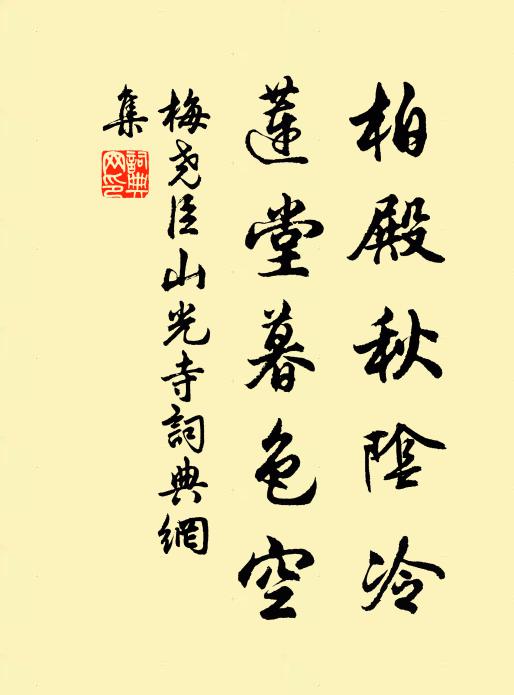 柏殿秋陰冷
蓮堂暮色空
梅尧臣山光寺詞典網
集
詞典
网印